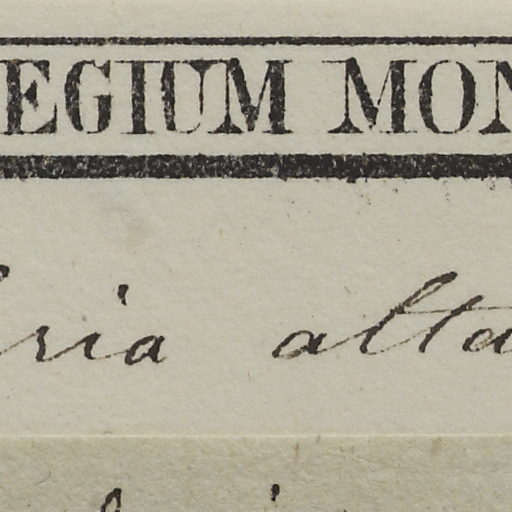 EGIUM MON
ria alta